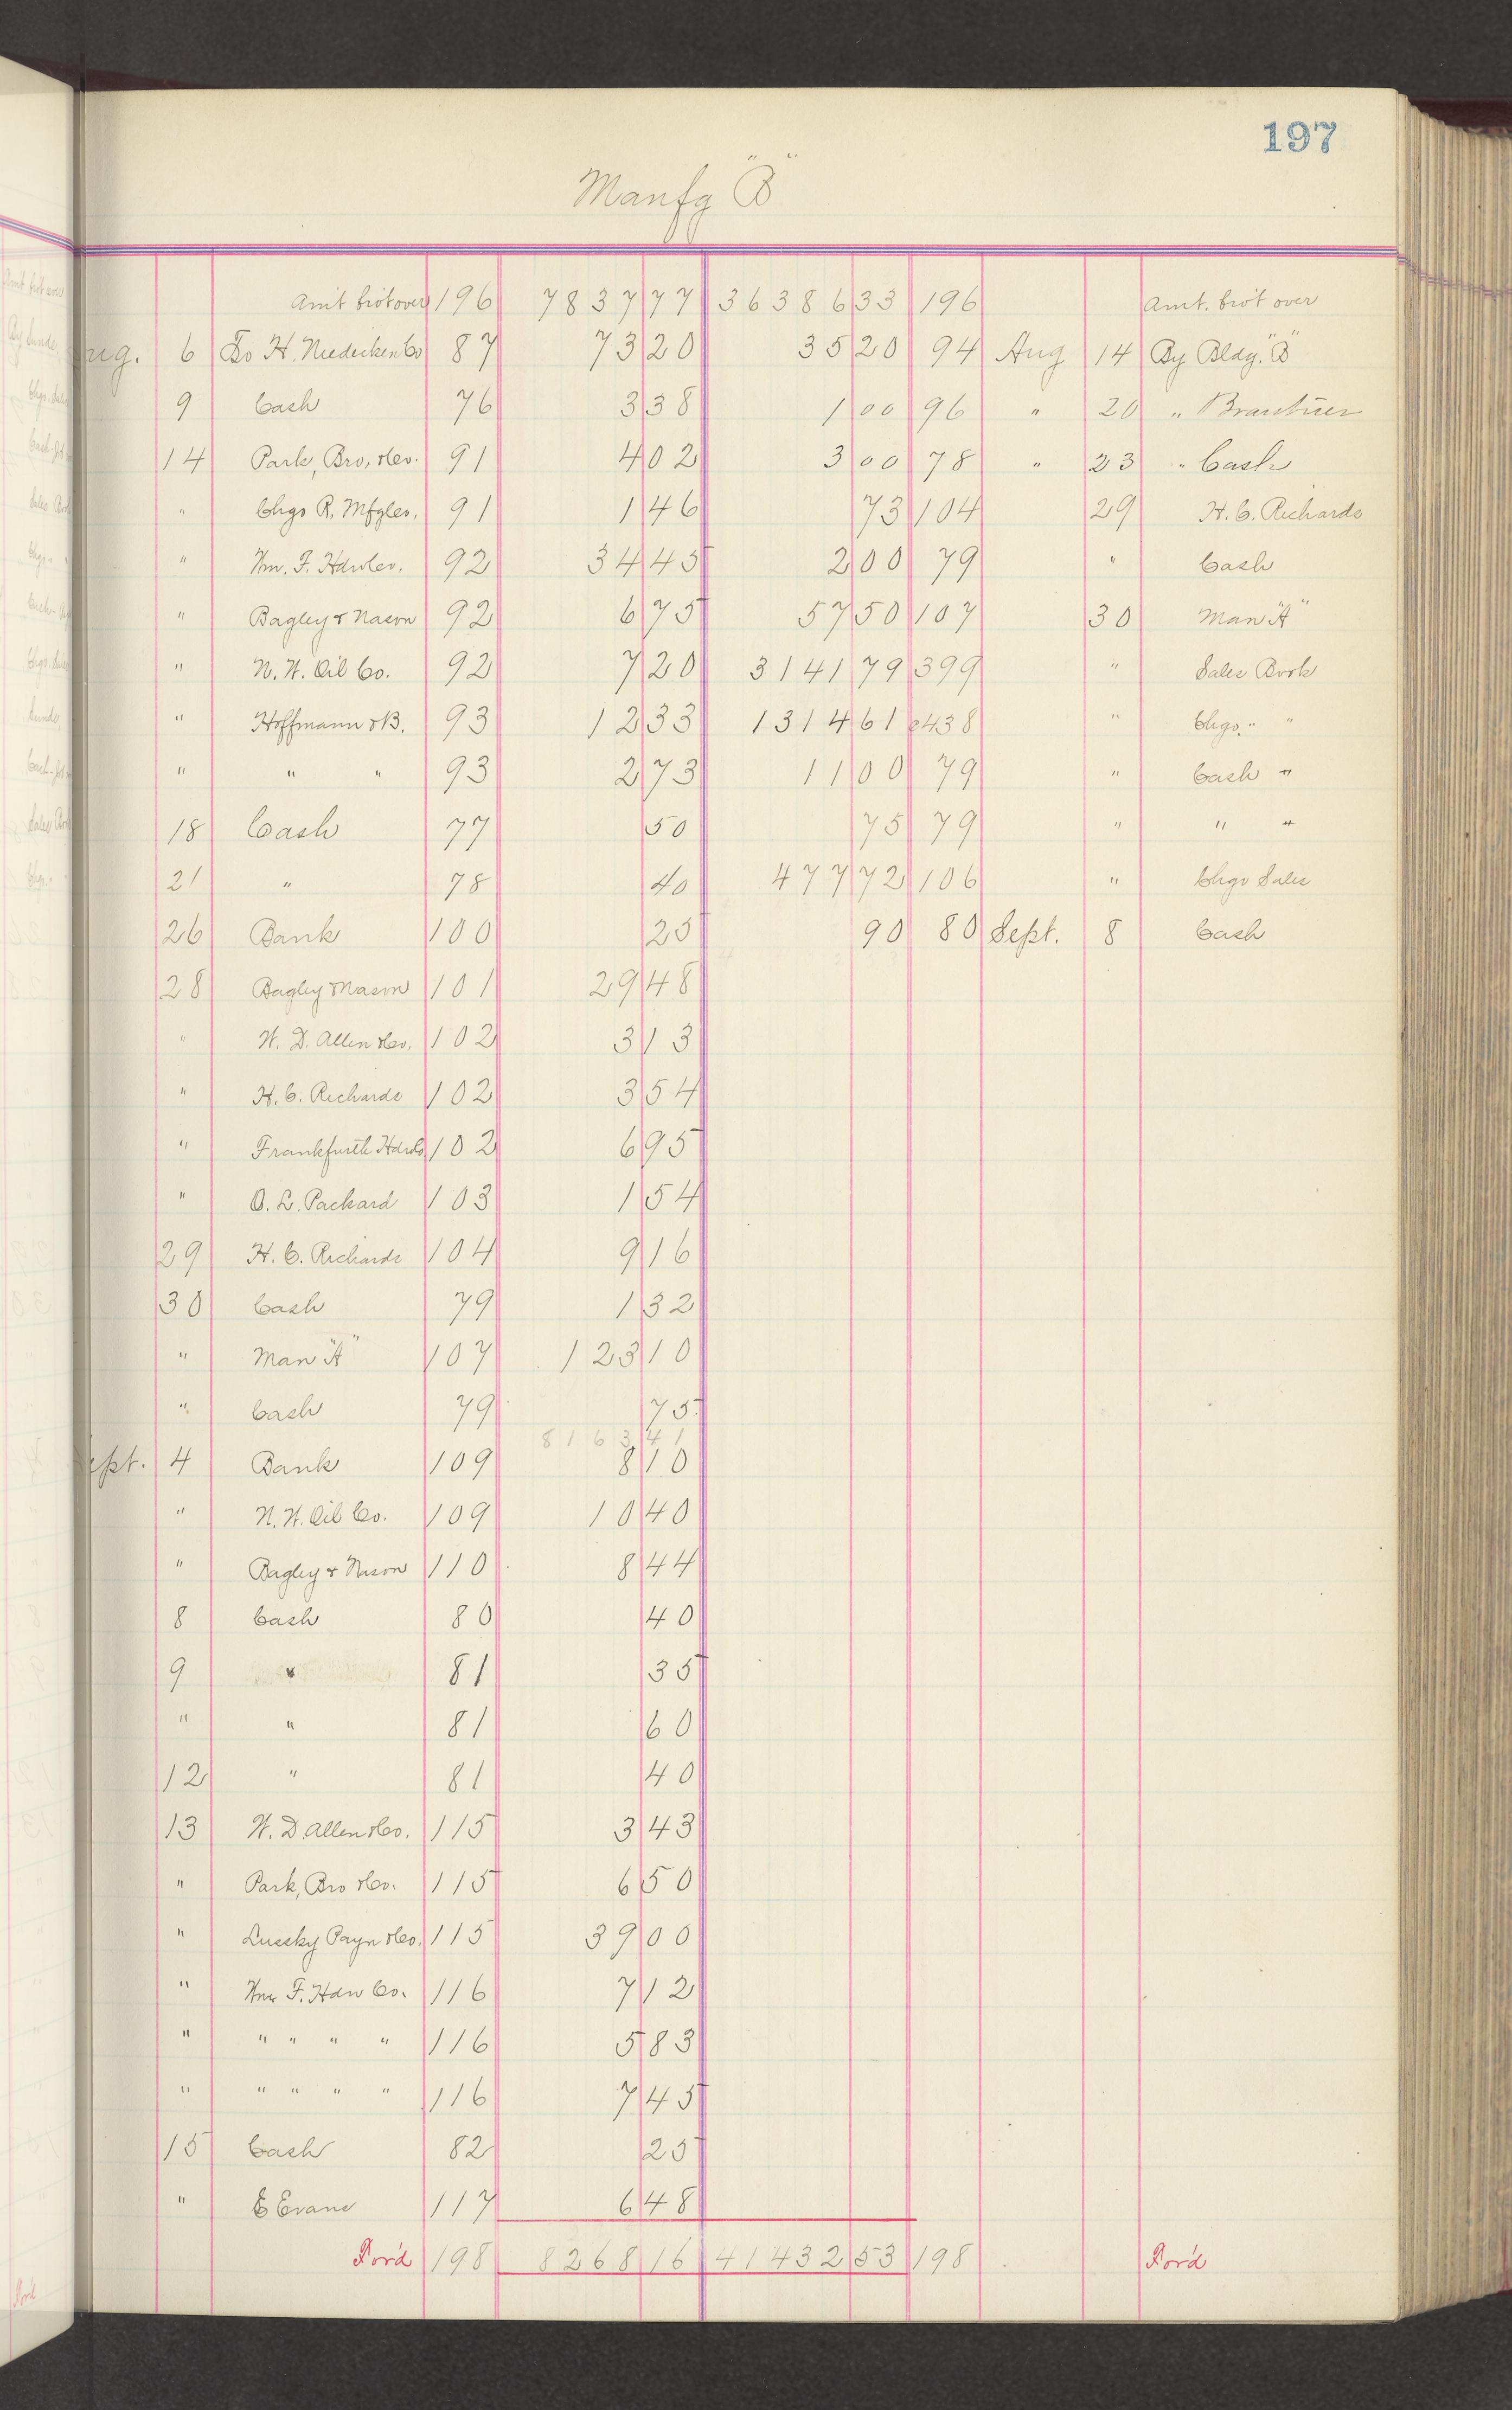 197
Manfg "B"
Amt brot over 196 7837 77 36386 33 196 Amt. brot over
Aug. 6 To H. Niedecken Co 87 73 20 35 20 94 Aug 14 By Bldg. "B"
9 Cash 76 3 38 1 00 96 " 20 "
14 Park, Bro, & Co. 91 4 02 3 00 78 " 23 " Cash
" Chgo R. Mfg & Co. 91 1 46 73 104 29 H. C. Richards
" Wm. F. Hdw Co. 92 34 45 2 00 79 " Cash
" Bagley & Nason 92 6 75 57 50 107 30 Man "A"
" N. W. Oil Co. 92 7 20 3141 79 399 " Sales Book
" Hoffmann & B. 93 12 33 1314 61 c438 " Chgo. " "
" " " 93 2 73 11 00 79 " Cash "
18 Cash 77 50 75 79 " " "
21 " 78 40 477 72 106 " Chgo Sales
26 Bank 100 25 90 80 Sept. 8 Cash
28 Bagley & Nason 101 29 48
" W. D. Allen & Co. 102 3 13
" H. C. Richards 102 3 54
" Frankfurth Hdw Co 102 6 95
" O. L. Packard 103 1 54
29 H. C. Richards 104 9 16
30 Cash 79 1 32
" Man "A" 107 123 10
" Cash 79 75
8163 41
Sept. 4 Bank 109 8 10
" N. W. Oil Co. 109 10 40
" Bagley & Nason 110 8 44
8 Cash 80 40
9 " 81 35
" " 81 60
12 " 81 40
13 W. D. Allen & Co. 115 3 43
" Park, Bro & Co. 115 6 50
" Lussky Payn & Co. 115 39 00
" Wm F. Hdw Co. 116 7 12
" " " " " 116 5 83
" " " " " 116 7 45
15 Cash 82 25
" E Evans 117 6 48
For'd 198 8268 16 41432 53 198 For'd